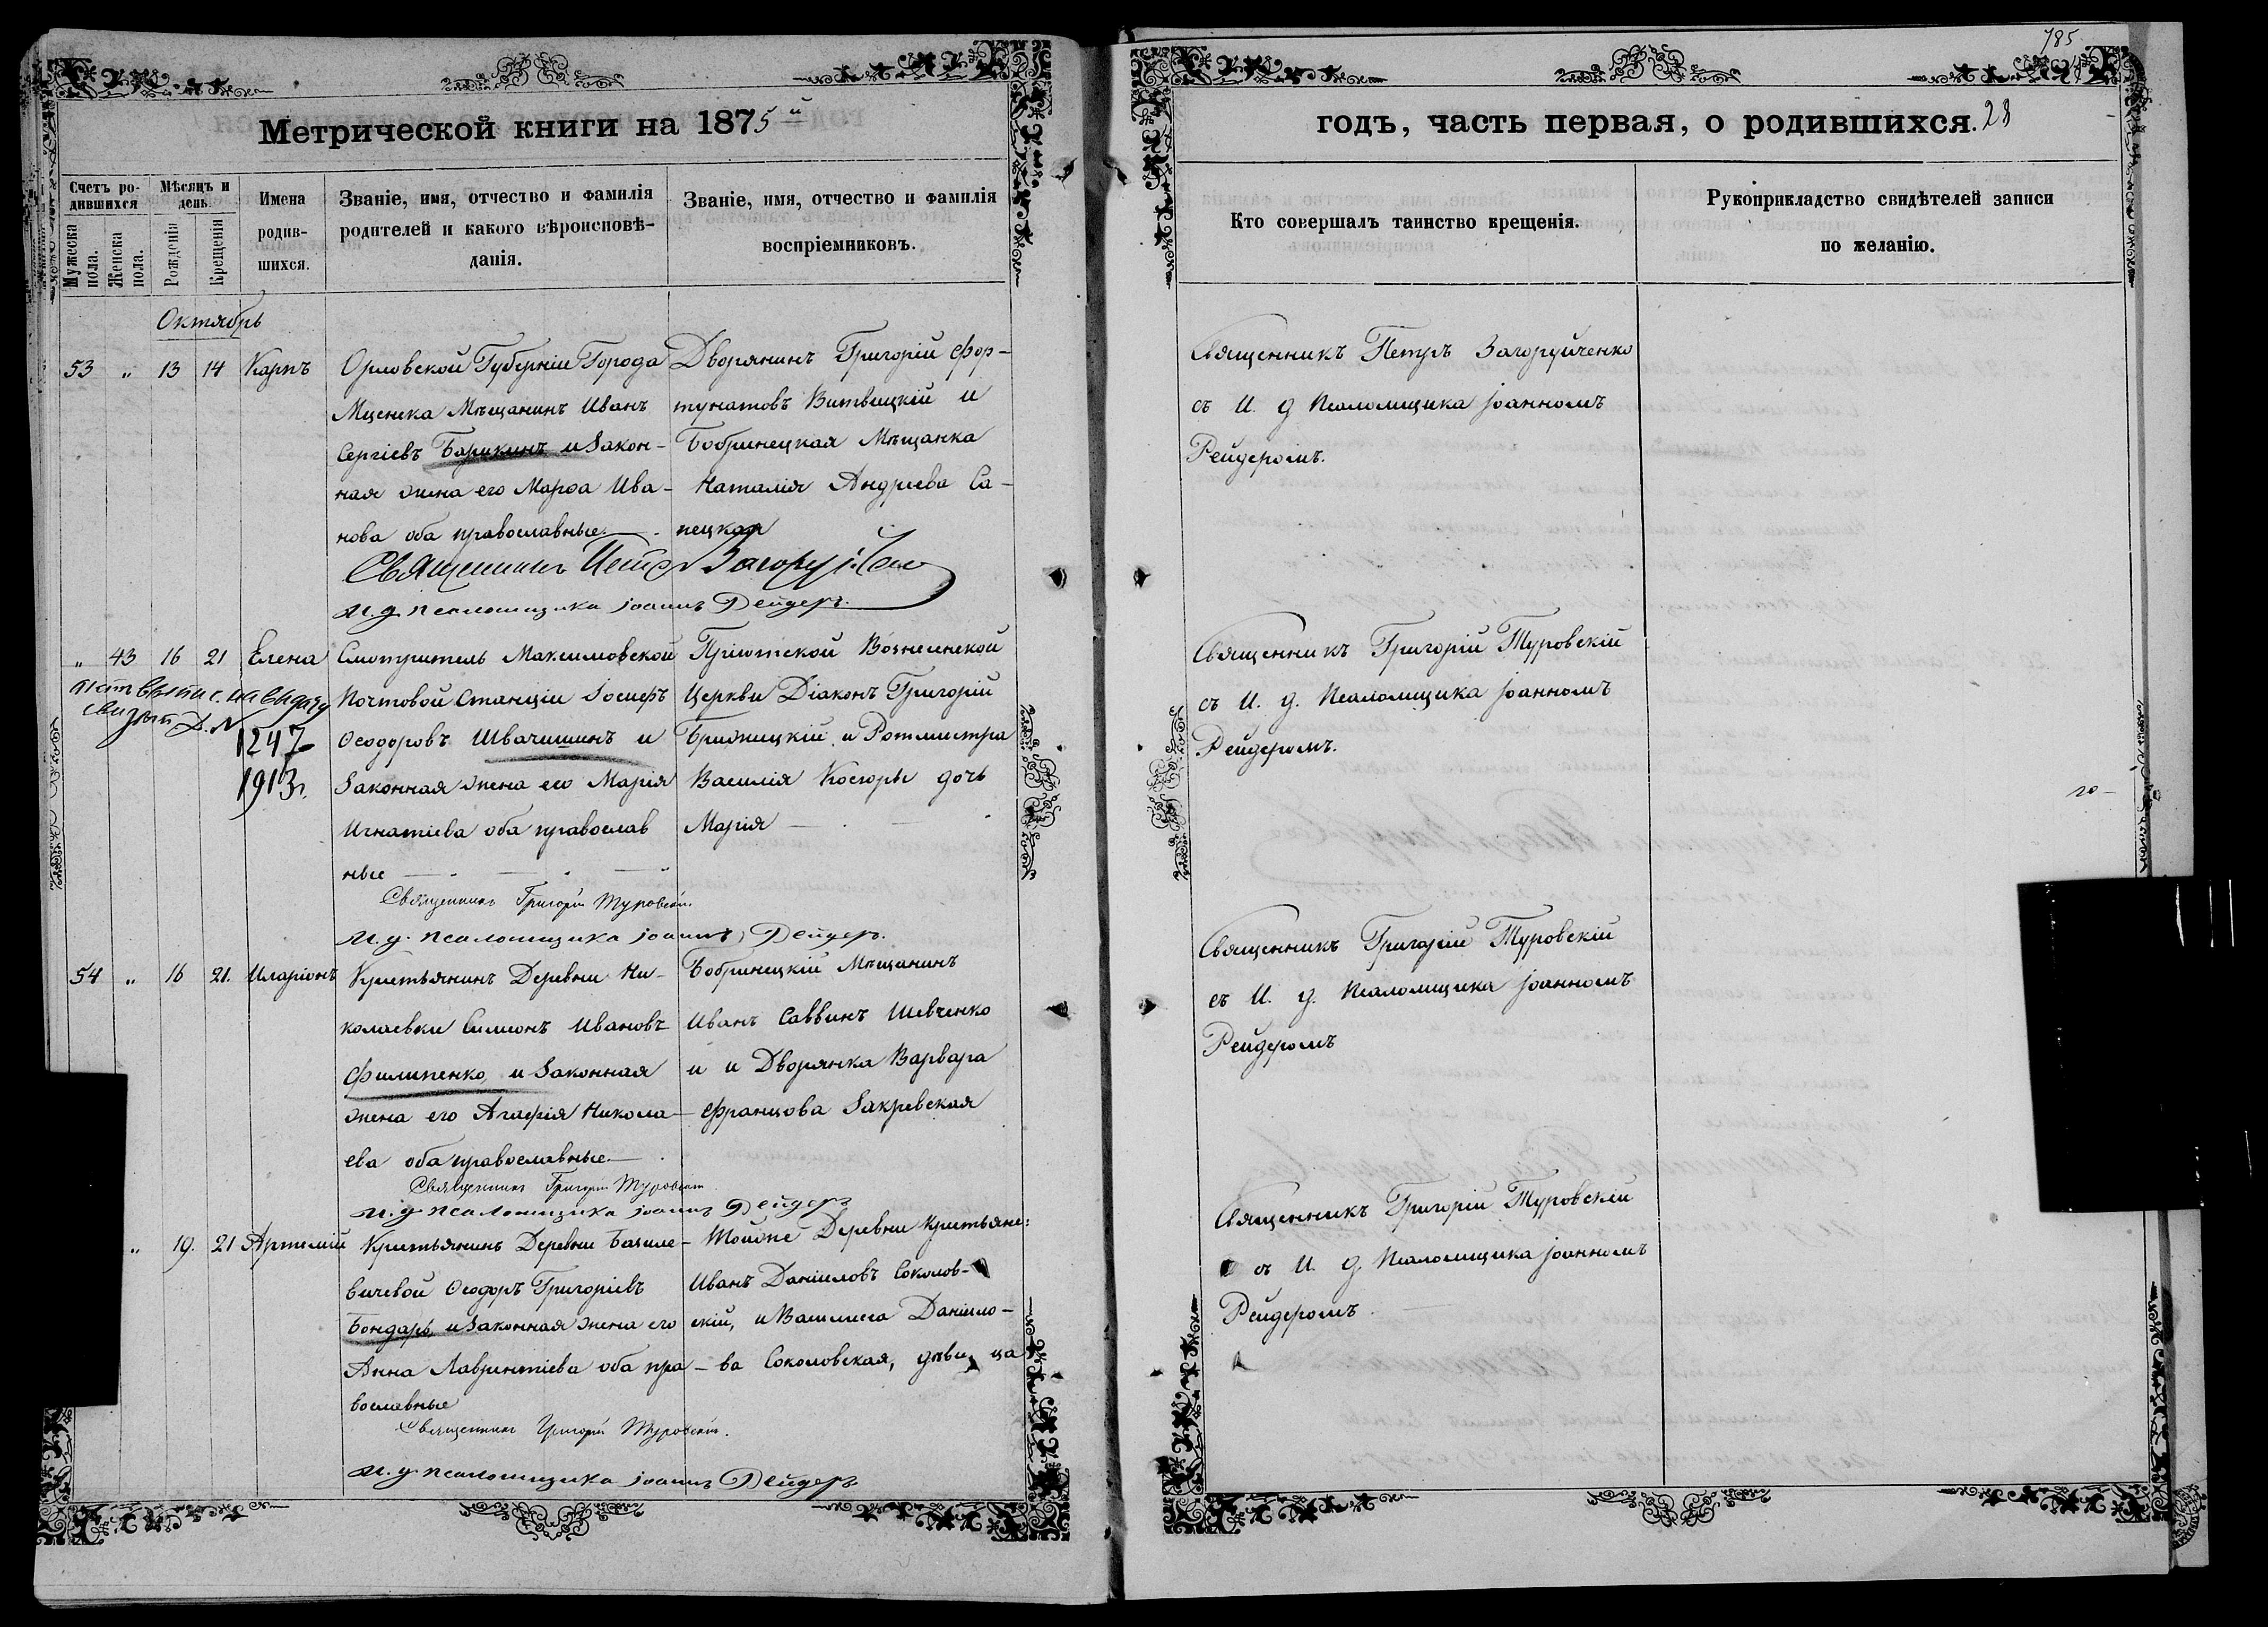 785
Метрической книги на 1875й
годъ, часть первая, о родившихся. 28
Счетъ ро-
дившихся
Мужеска пола.
Женска пола.
Мѣсяцъ и
день
Рожденія
Крещенія
Имена
родив-
шихся.
Званіе, имя, отчество и фамилія
родителей и какого вѣроисповѣ-
данія.
Званіе, имя, отчество и фамилія
воспріемниковъ.
Кто совершалъ таинство крещенія.
Рукоприкладство свидѣтелей записи
по желанію.
Октябрь
53 " 13 14 Карпъ
Орловской Губерніи Города
Мценска Мѣщанинъ Иванъ
Сергіевъ Барикинъ и Закон-
ная жена его Марѳа Ива-
нова оба православные.
Дворянинъ Григорій Фор-
тунатовъ Витвицкій и
Бобринецкая Мѣщанка
Наталія Андреева Са-
пецкая
Священникъ Петръ Загоруйченко
съ И. д Псаломщика Іоанномъ
Рейдеромъ.
Священникъ Петръ
И. д. псаломщика Іоаннъ Рейдеръ.
" 43 16 21 Елена
на выдачу
1247
1913 г.
Смотритель Максимовской
Почтовой Станціи Іосифъ
Ѳеодоровъ Швачишинъ и
Законная жена его Марія
Игнатіева оба православ
ные
Пріютской Вознесенской
Церкви Діаконъ Григорій
Брижицкій и Ротмистра
Василія Косюры дочь
Марія
Священникъ Григорій Туровскій
съ И. д. Псаломщика Іоанномъ
Рейдеромъ.
Священникъ Григорій Туровскій.
И. д. псаломщика Іоаннъ Рейдеръ.
54 " 16 21. Иларіонъ
Крестьянинъ Деревни Ни-
колаевки Симеонъ Ивановъ
Филипенко, и Законная
жена его Агафія Никола-
ева оба православные
Бобринецкій Мѣщанинъ
Иванъ Саввинъ Шевченко
и и Дворянка Варвара
Францова Закревская
Священникъ Григорій Туровскій
съ И. д. Псаломщика Іоанномъ
Рейдеромъ
Священникъ Григорій Туровскій
И. д. псаломщика Іоаннъ Рейдеръ
" 19. 21 Артемій
Крестьянинъ Деревни Базиле-
вичевой Ѳеодоръ Григоріевъ
Бондарь, и Законная жена его
Анна Лаврентіева оба пра-
вославные
Тойже Деревни крестьяне:
Иванъ Даніиловъ Соколов-
скій, и Василиса Даніило-
ва Соколовская, дѣвица
Священникъ Григорій Туровскій
съ И. д Псаломщика Іоанномъ
Рейдеромъ
Священникъ Григорій Туровскій.
И. д. псаломщика Іоаннъ Рейдеръ